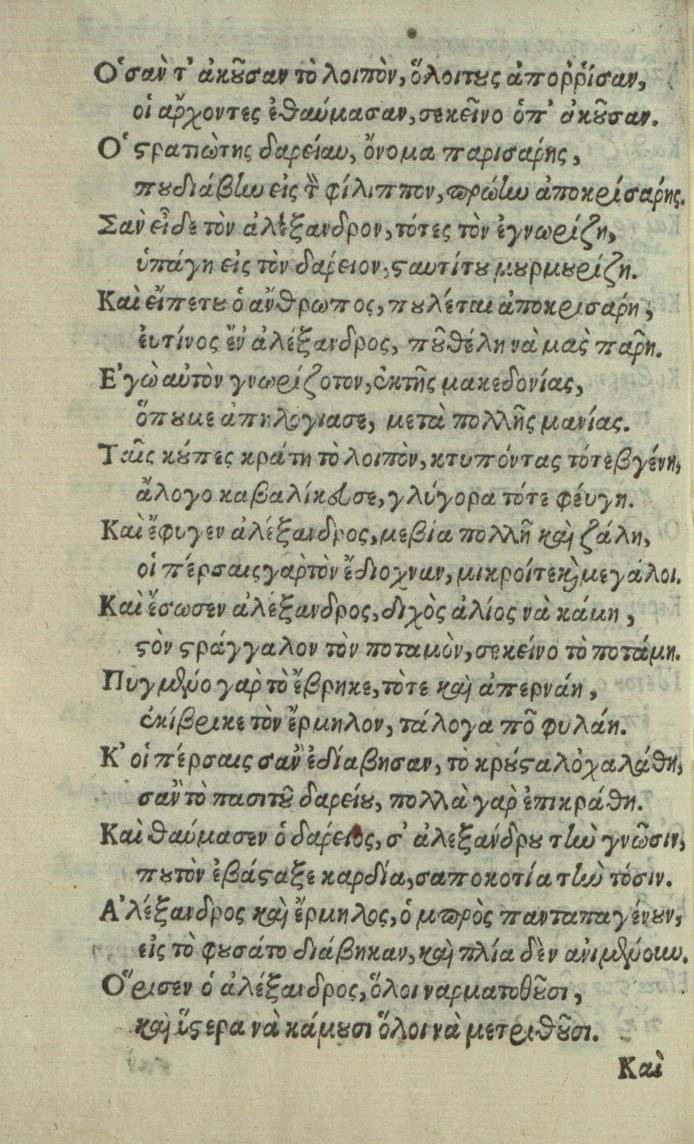 Ὅσαν τ' ἀκοῦσαν τὸ λοιπὸν, ὅλοιτους ἀπορῥίσαν,
οἱ ἄρχοντες ἐθαύμασαν, σεκεῖνο ὁπ' ἀκοῦσαν.
Ὁ στρατιώτης δαρείου, ὄνομα παρισάρης,
πουδιάβην εἰς τὸν φίλιππον, πρώτην ἀποκρισάρης.
Σαν εἶδε τὸν ἀλέξανδρον, τότες τὸν ἐγνωρίζη,
ὑπάγη εἰς τὸν δαρειον, σταυτίτου μουρμουρίζη.
Καὶ εἴπετου ὁ ἄνθρωπος, πουλέται ἀποκρισάρη,
ἐυτίνος ἔν' ἀλέξανδρος, ποῦθέλη νὰ μας πάρη.
Ἐγὼ αὐτὸν γνωρίζοτον, ἐκτῆς μακεδονίας,
ὅπουμε ἀπηλογιασε, μετὰ πολλῆς μανίας.
Ταῖς κούπες κράτη τὸ λοιπὸν, κτυπόντας τότεβγένη,
ἄλογο καβαλίκευσε, γλύγορα τότε φέυγη.
Καὶ ἔφυγεν ἀλέξανδρος, μεβία πολλῆ καὶ ζάλη,
οἱ πέρσαις γαρτὸν ἔδιοχναν, μικροίτε καὶ μεγάλοι.
Καὶ ἔσωσεν ἀλέξανδρος, διχὸς ἀλίος νὰ κάμη,
στὸν στράγγαλον τὸν ποταμὸν, σεκείνο τὸ ποτάμη.
Πυγμένο γαρ τὸ ἔβρηκε, τότε καὶ ἀπερνάη,
ἐκίβρικε τὸν ἔρμηλον, τάλογα ποῦ φυλάη.
Κ' οἱ πέρσαις σαν ἐδίαβησαν, τὸ κρύσταλο χαλάθη,
σαν τὸ πασιτοῦ δαρείου, πολλὰ γαρ ἐπικράθη.
Καὶ θαύμασεν ὁ δαρείος, σ' ἀλεξάνδρου τὴν γνῶσιν,
πουτὸν ἐβάσταξε καρδία, σαποκοτία τὴν τόσιν.
Ἀλέξανδρος καὶ ἔρμηλος, ὁμπρὸς πανταπαγένουν,
εἰς τὸ φουσάτο διάβηκαν, καὶ πλία δὲν ἀνιμένουν.
Ὅρισεν ὁ ἀλέξανδρος, ὅλοι ναρματοθοῦσι,
καὶ ὕστερα νὰ κάμουσι ὅλοι νὰ μετριθοῦσι.
Καὶ